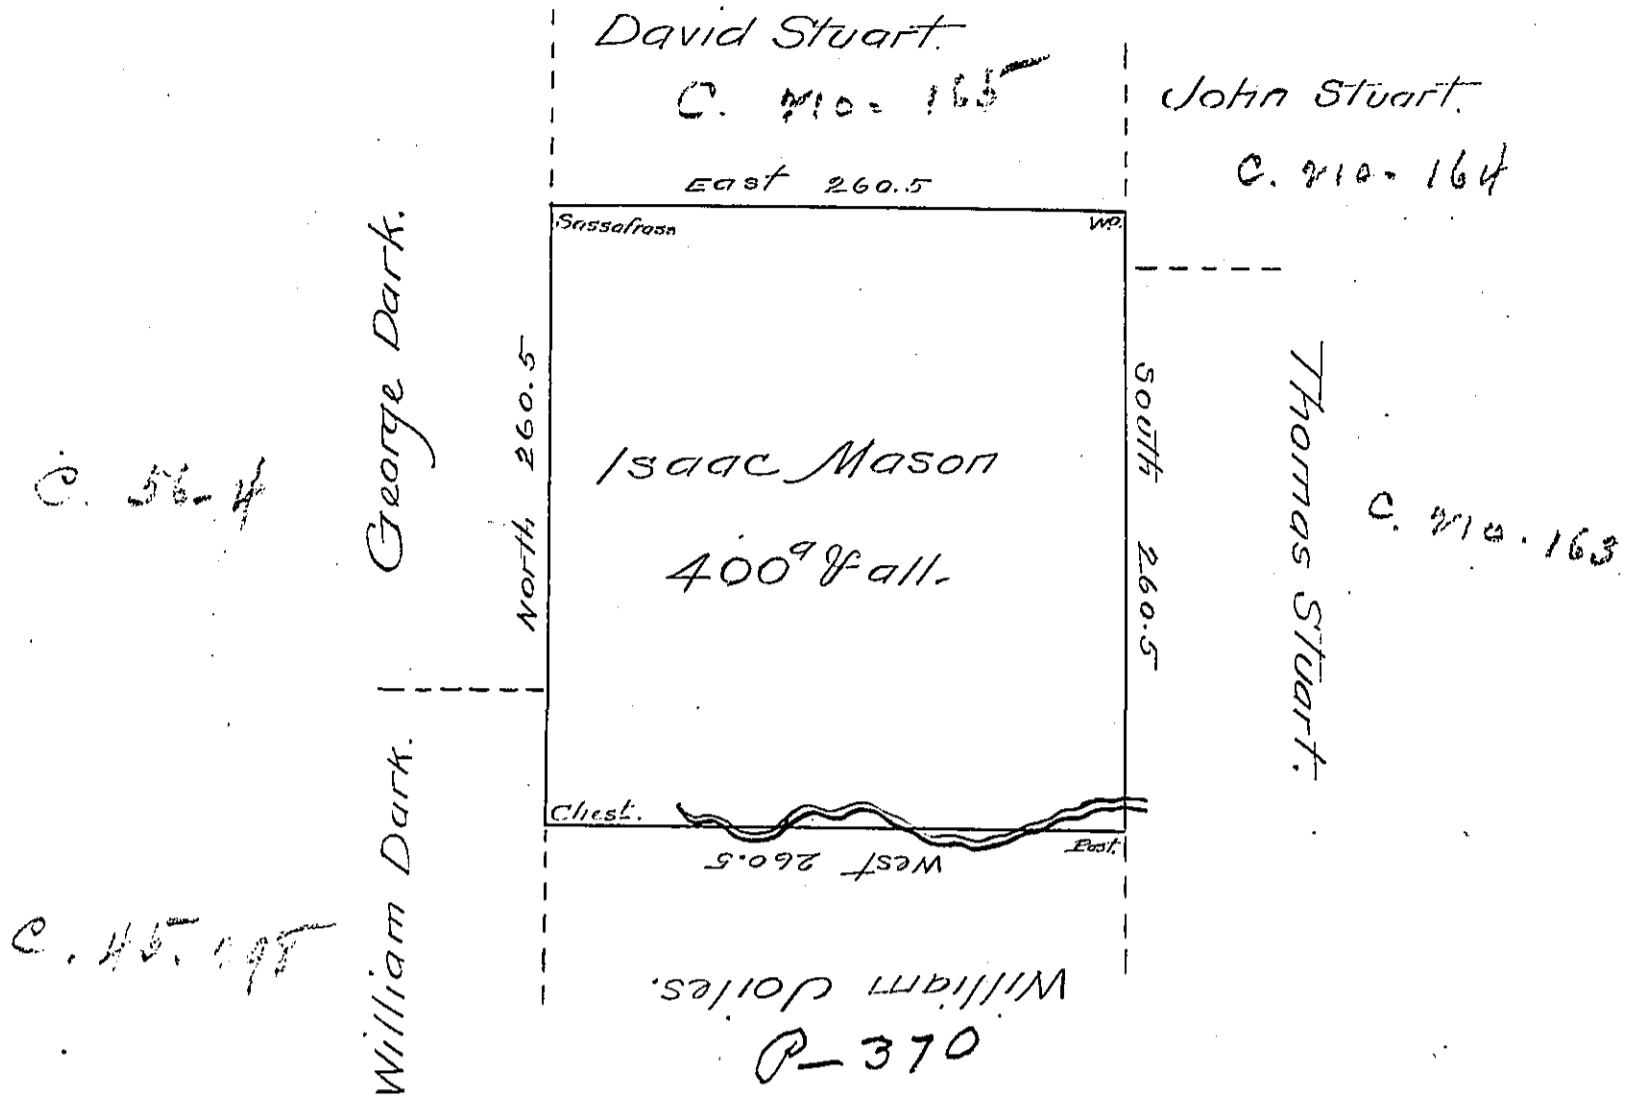 David Stuart.
C. 210- 165
John Stuart.
C. 210- 164
East 260.5
Sassafrass
W.O.
George Dark.
North, 260.5
Isaac Mason
400ª & all.
South 260.5
Thomas Stuart.
C. 210. 163
C. 56-4
Chest.
Post.
West 260.5
William Dark.
C. 45.
William Joiles.
P-370